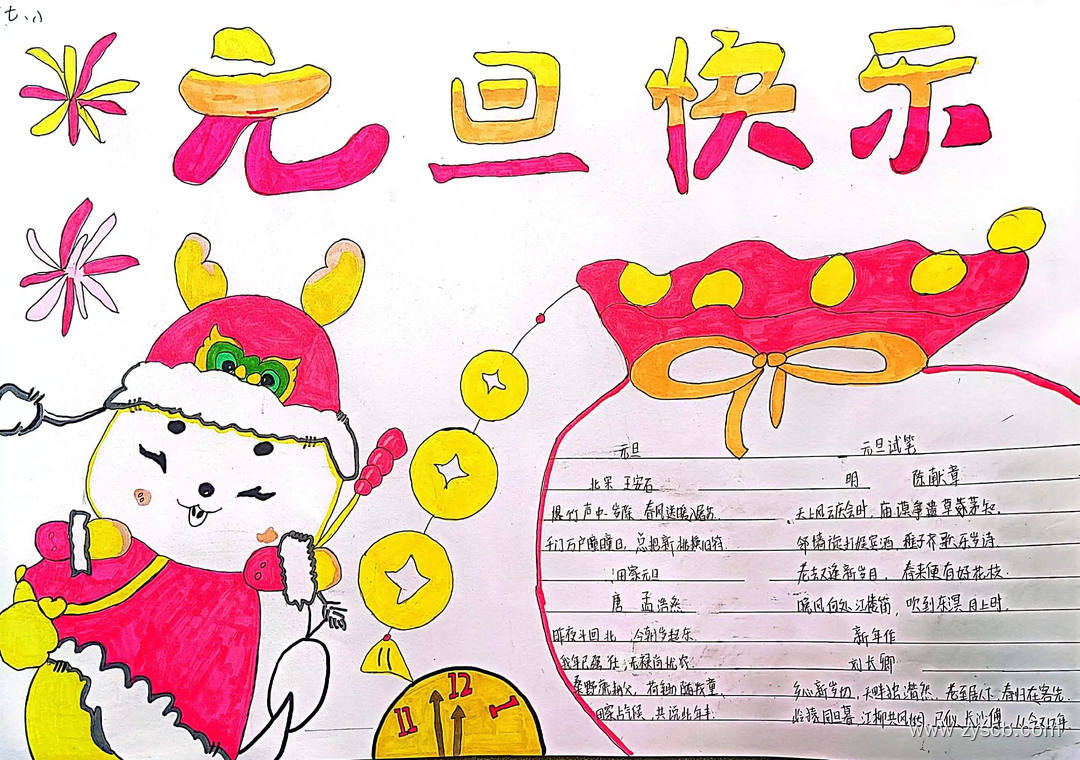 七.八
元旦快示
元旦
北宋 王安石
爆竹声中一岁除 春风送暖入屠苏
千门万户曈曈日，总把新桃换旧符.
田家元旦
唐 孟浩然
昨夜斗回北 今朝岁起东
我年已强仕，无禄尚忧农.
桑野就耕父，荷锄随牧童，
田家占气候，共说此年丰.
元旦试笔
明 陈献章
天上风云庆会时，庙谟争遣草茅知.
邻墙旋打娱宾酒，稚子齐歌乐岁诗.
老去又逢新岁月，春来便有好花枝.
晚风何处江楼笛，吹到东溟月上时.
新年作
刘长卿
乡心新岁切，天畔独潸然，老至居人下，春归在客先.
岭猿同旦暮 江柳共风烟，已似长沙傅，从今又几年
11 12 1
www.zyscb.com